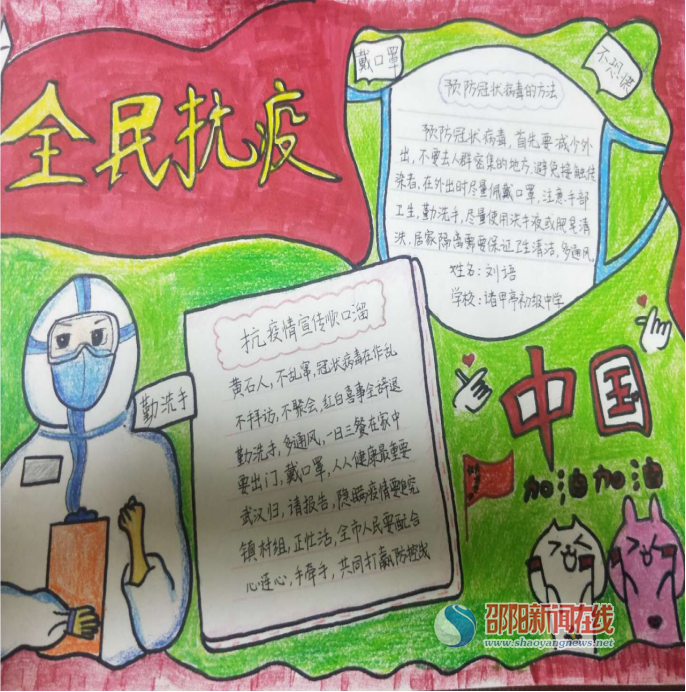 全民抗疫
戴口罩
不恐惧
预防冠状病毒的方法
预防冠状病毒,首先要减少外
出,不要去人群密集的地方,避免接触传
染者,在外出时尽量佩戴口罩,注意手部
卫生,勤洗手,尽量使用洗手液或肥皂清
洗,居家隔离需要保证卫生清洁,多通风
姓名:刘语
学校:诸甲亭初级中学
抗疫情宣传顺口溜
黄石人,不乱窜,冠状病毒在作乱
不拜访,不聚会,红白喜事全辞退
勤洗手,多通风,一日三餐在家中
要出门,戴口罩,人人健康最重要
武汉归,请报告,隐瞒疫情要究
镇村组,正忙活,全市人民要配合
心连心,手牵手,共同打赢防控战
勤洗手
中国
加油加油
邵阳新闻在线
www.shaoyangnews.net